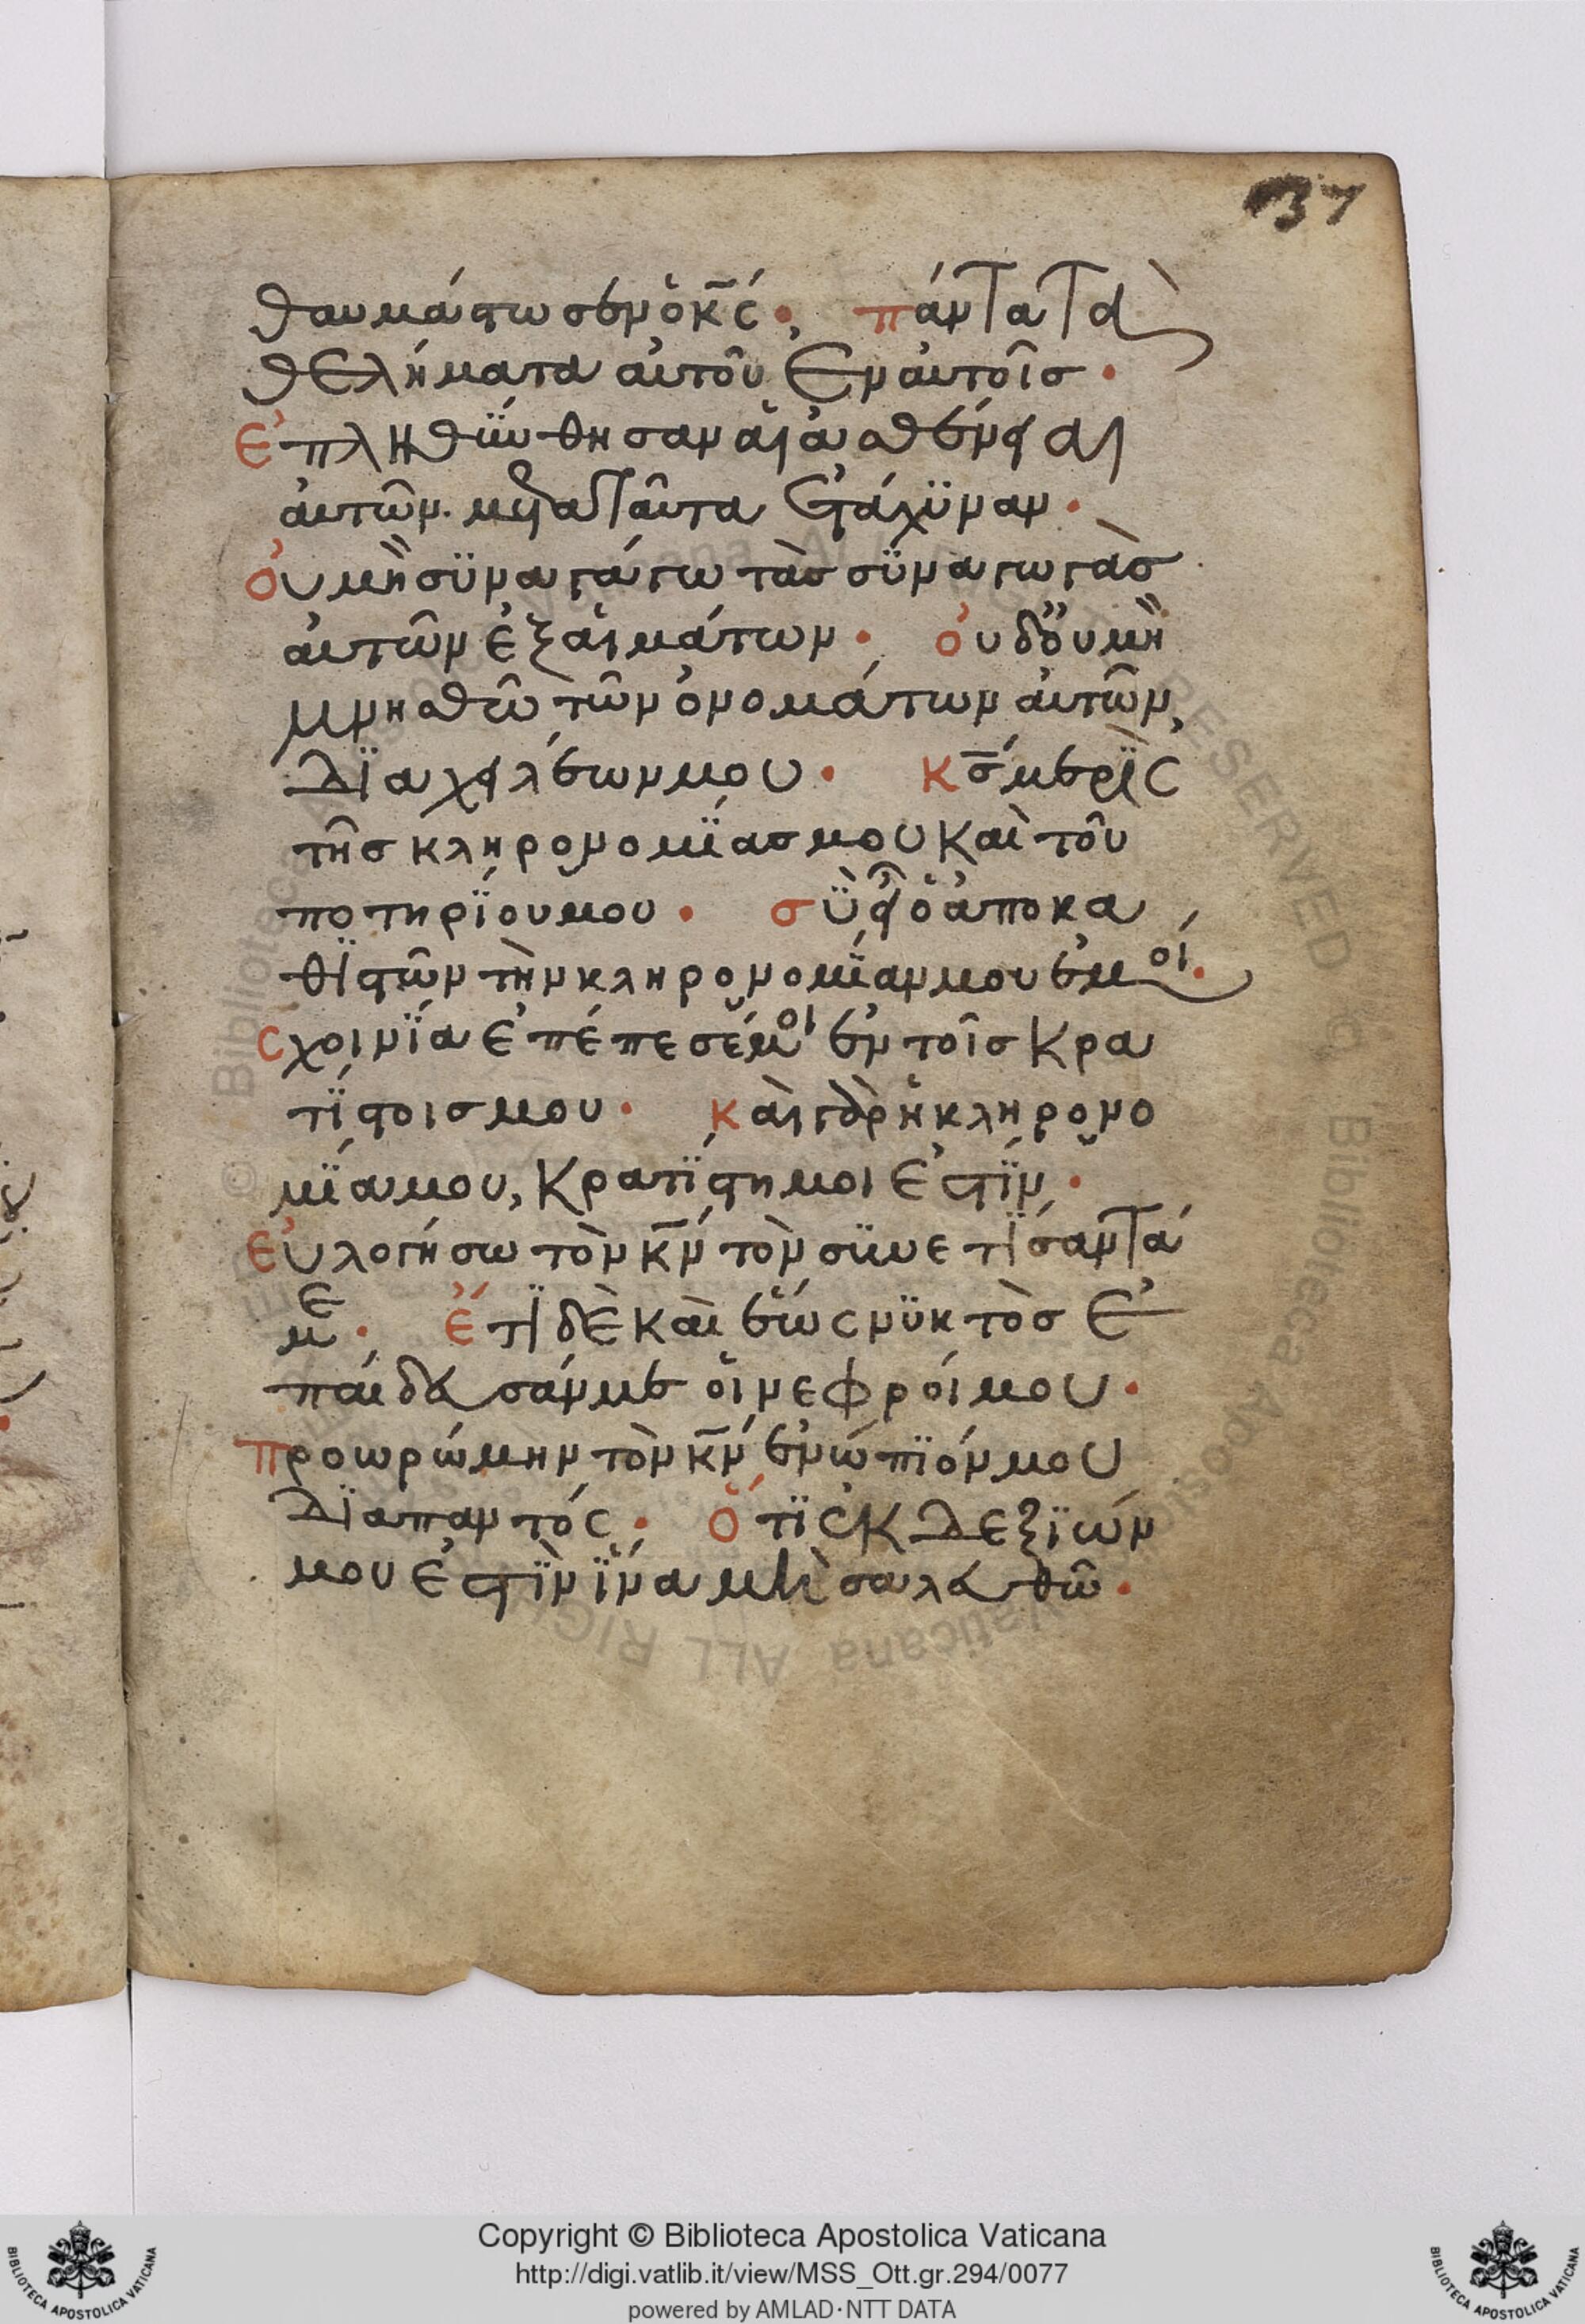 37
θαυμάστωσεν ὁ κς· πάντα τὰ
θελήματα αὐτοῦ ἐν αὐτοῖσ·
ἐπληθΰνθησαν αἱ ἀσθένειαι
αὐτῶν· μετὰ ταῦτα ἐτάχϋναν·
οὐ μὴ σϋναγάγω τὰσ σϋναγωγὰσ
αὐτῶν ἐξ αἱμάτων· οὐδοὐ μὴ
μνησθῶ τῶν ὀνομάτων αὐτῶν,
δϊὰ χειλέων μου· κσ μερῒς
τῆσ κληρονομΐασ μου καὶ τοῦ
ποτηρΐου μου· σῢ εἶ ὁ ἀποκα
θϊστῶν τὴν κληρονομΐαν μου ἐμοί·
σχοινΐα ἐπέπεσέ μοι ἐν τοῖσ κρα
τΐστοισ μου· καὶ γὰρ ἡ κληρονο
μΐα μου, κρατΐστη μοι ἐστϊν·
εὐλογήσω τὸν κν τὸν σϋνετΐσαντά
με· ἔτϊ δὲ καὶ ἕως νϋκτὸσ ἐ
παίδευσάν με οἱ νεφροί μου·
προωρώμην τὸν κν ἐνώπϊόν μου
δϊαπαντός· ὅτϊ ἐκ δεξϊῶν
μου ἐστῒν ἵ̈να μὴ σαλευθῶ·
© Biblioteca Apostolica Vaticana ALL RIGHTS RESERVED
Copyright © Biblioteca Apostolica Vaticana
http://digi.vatlib.it/view/MSS_Ott.gr.294/0077
powered by AMLAD·NTT DATA
BIBLIOTECA APOSTOLICA VATICANA
BIBLIOTECA APOSTOLICA VATICANA